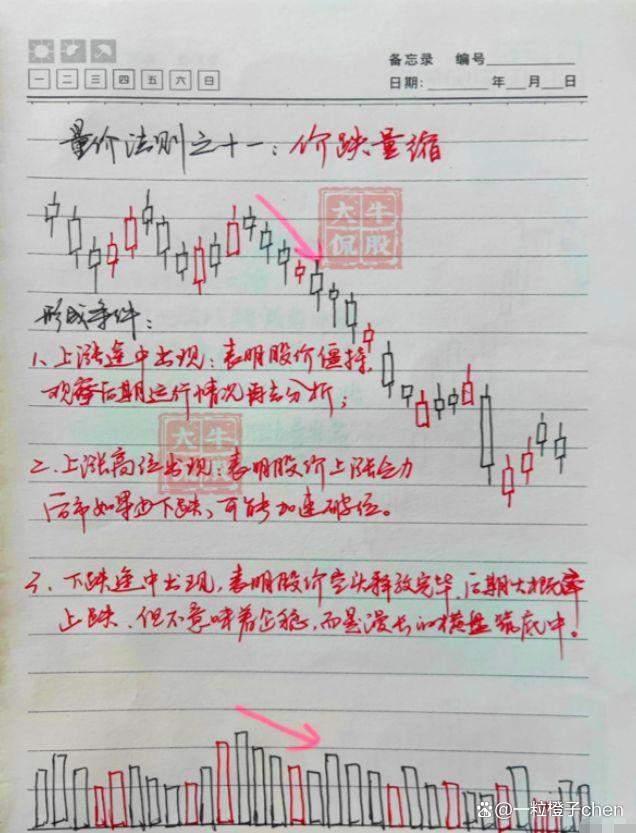 备忘录 编号
一 二 三 四 五 六 日
日期: 年 月 日
量价法则之十一:价跌量缩
大牛
侃股
形成条件:
1、上涨途中出现:表明股价僵持,
观察后期运行情况再去分析;
大牛
侃股
2、上涨高位出现:表明股价上涨乏力
后市如果也下跌、可能加速破位。
3、下跌途中出现,表明股价空头释放完毕,后期大概率
止跌、但不意味着企稳,而是漫长的横盘筑底中!
@一粒橙子chen